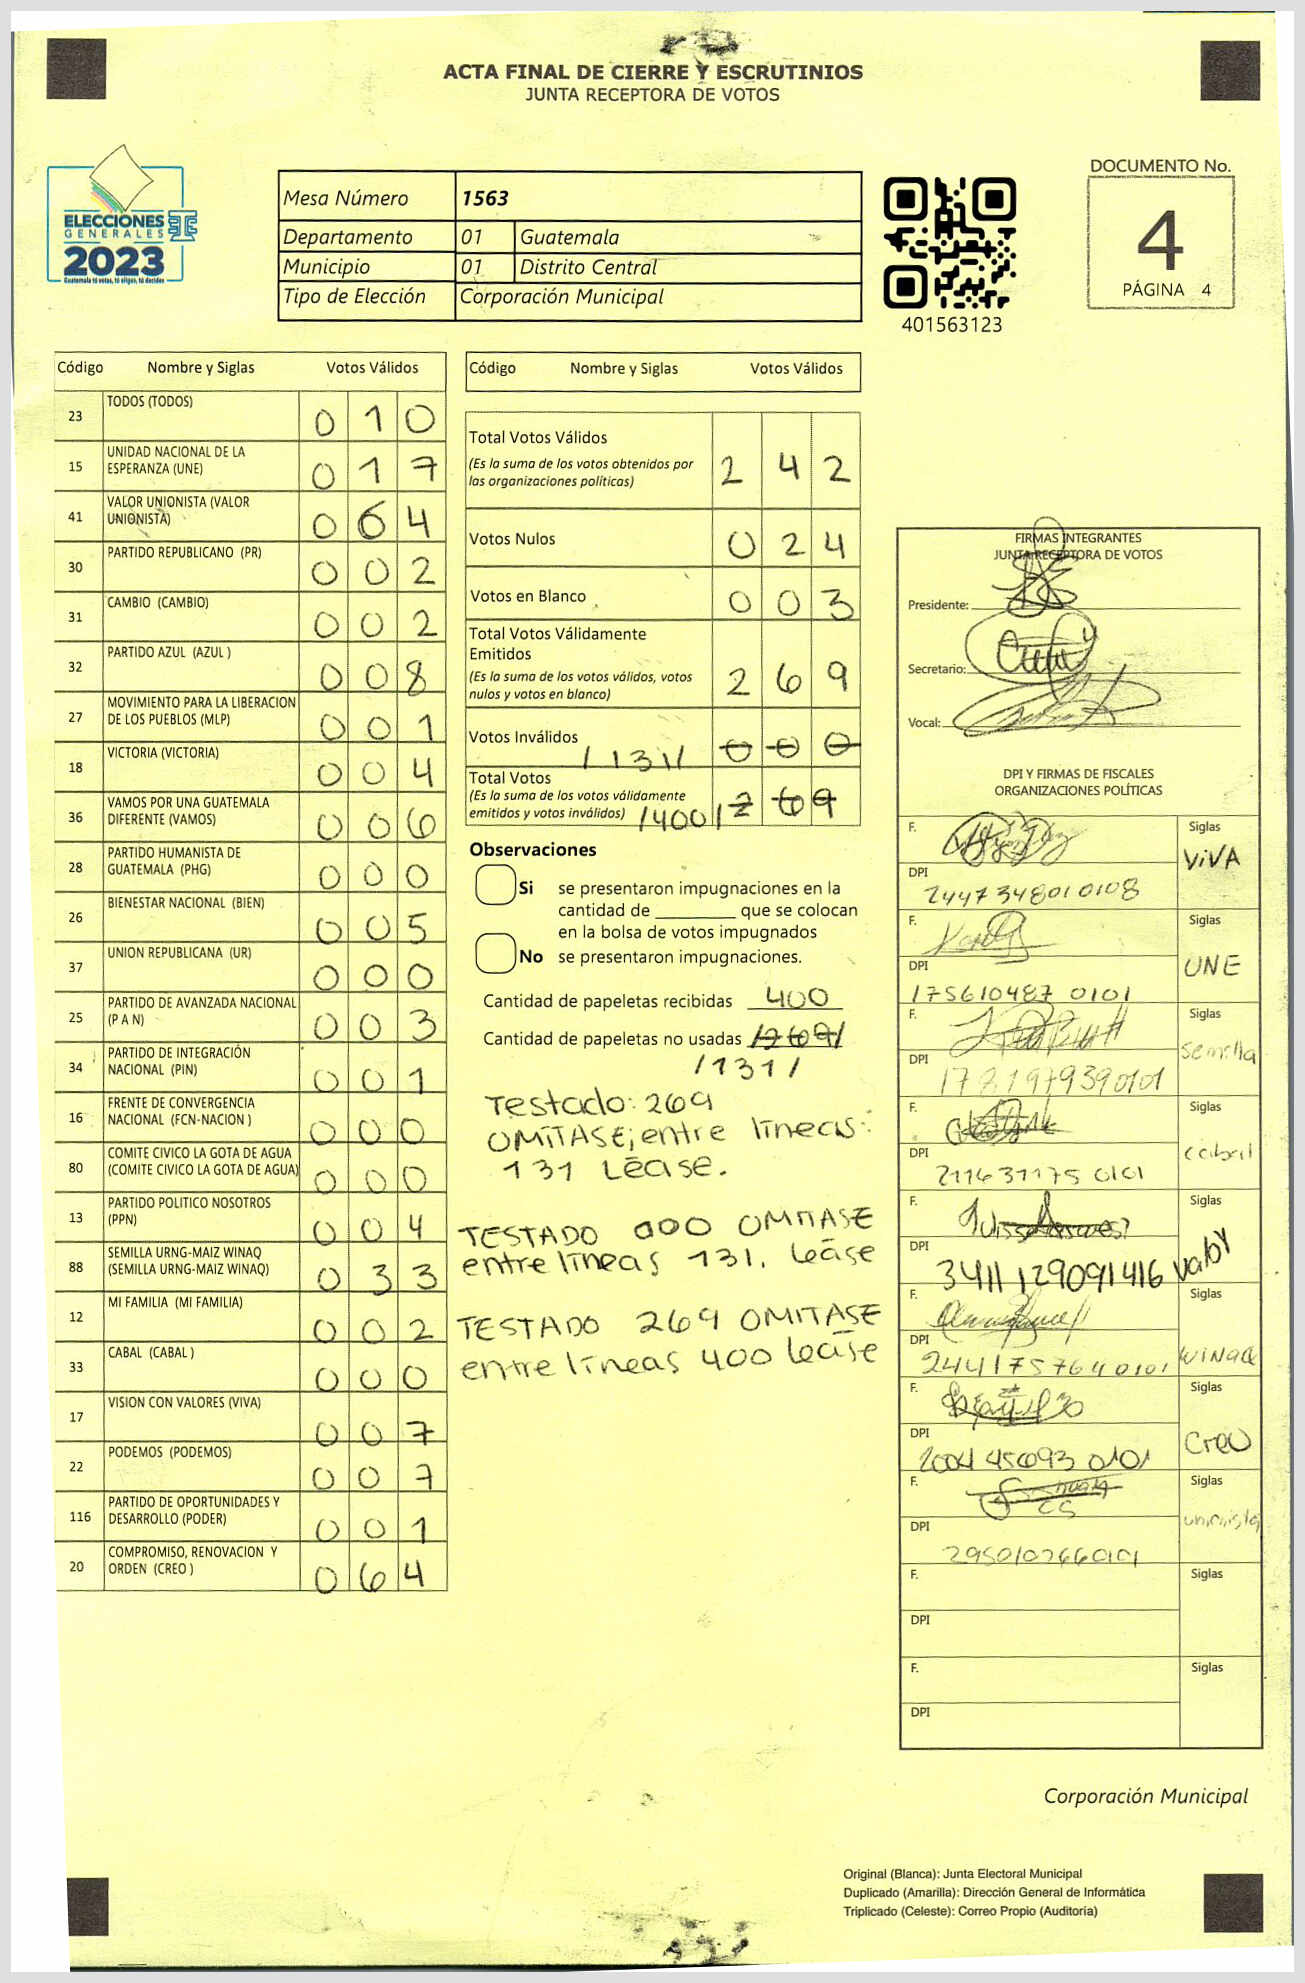 ACTA FINAL DE CIERRE Y ESCRUTINIOS
JUNTA RECEPTORA DE VOTOS
ELECCIONES
GENERALES
2023
Guatemala tú votas, tú eliges, tú decides
Mesa Número 1563
Departamento 01 Guatemala
Municipio 01 Distrito Central
Tipo de Elección Corporación Municipal
401563123
DOCUMENTO No.
4
PÁGINA 4
Código Nombre y Siglas Votos Válidos
23 TODOS (TODOS) 0 1 0
15 UNIDAD NACIONAL DE LA
ESPERANZA (UNE) 0 1 7
41 VALOR UNIONISTA (VALOR
UNIONISTA) 0 6 4
30 PARTIDO REPUBLICANO (PR) 0 0 2
31 CAMBIO (CAMBIO) 0 0 2
32 PARTIDO AZUL (AZUL ) 0 0 8
27 MOVIMIENTO PARA LA LIBERACION
DE LOS PUEBLOS (MLP) 0 0 1
18 VICTORIA (VICTORIA) 0 0 4
36 VAMOS POR UNA GUATEMALA
DIFERENTE (VAMOS) 0 0 6
28 PARTIDO HUMANISTA DE
GUATEMALA (PHG) 0 0 0
26 BIENESTAR NACIONAL (BIEN) 0 0 5
37 UNION REPUBLICANA (UR) 0 0 0
25 PARTIDO DE AVANZADA NACIONAL
(P A N) 0 0 3
34 PARTIDO DE INTEGRACIÓN
NACIONAL (PIN) 0 0 1
16 FRENTE DE CONVERGENCIA
NACIONAL (FCN-NACION ) 0 0 0
80 COMITE CIVICO LA GOTA DE AGUA
(COMITE CIVICO LA GOTA DE AGUA) 0 0 0
13 PARTIDO POLITICO NOSOTROS
(PPN) 0 0 4
88 SEMILLA URNG-MAIZ WINAQ
(SEMILLA URNG-MAIZ WINAQ) 0 3 3
12 MI FAMILIA (MI FAMILIA) 0 0 2
33 CABAL (CABAL ) 0 0 0
17 VISION CON VALORES (VIVA) 0 0 7
22 PODEMOS (PODEMOS) 0 0 7
116 PARTIDO DE OPORTUNIDADES Y
DESARROLLO (PODER) 0 0 1
20 COMPROMISO, RENOVACION Y
ORDEN (CREO ) 0 6 4
Código Nombre y Siglas Votos Válidos
Total Votos Válidos
(Es la suma de los votos obtenidos por
las organizaciones políticas) 2 4 2
Votos Nulos 0 2 4
Votos en Blanco 0 0 3
Total Votos Válidamente
Emitidos
(Es la suma de los votos válidos, votos
nulos y votos en blanco) 2 6 9
Votos Inválidos /131/ 0 0 0
Total Votos
(Es la suma de los votos válidamente
emitidos y votos inválidos) /400/ 2 6 9
Observaciones
Si se presentaron impugnaciones en la
cantidad de ________ que se colocan
en la bolsa de votos impugnados
No se presentaron impugnaciones.
Cantidad de papeletas recibidas 400
Cantidad de papeletas no usadas /269/
/131/
Testado: 269
OMITASE; entre lineas:
131 Léase.
TESTADO 000 OMITASE
entre líneas 131. Léase
TESTADO 269 OMITASE
entre líneas 400 Léase
FIRMAS INTEGRANTES
JUNTA RECEPTORA DE VOTOS
Presidente:
Secretario:
Vocal:
DPI Y FIRMAS DE FISCALES
ORGANIZACIONES POLÍTICAS
F. Siglas
VIVA
DPI
2447348010108
F. Siglas
UNE
DPI
175610487 0101
F. Siglas
semilla
DPI
F. Siglas
cabal
DPI
F. Siglas
valor
DPI
3411129091416
F. Siglas
WINAQ
DPI
2441757640101
F. Siglas
CREO
DPI
2004 45693 0101
F. Siglas
unionista
DPI
F. Siglas
DPI
F. Siglas
DPI
Corporación Municipal
Original (Blanca): Junta Electoral Municipal
Duplicado (Amarilla): Dirección General de Informática
Triplicado (Celeste): Correo Propio (Auditoría)